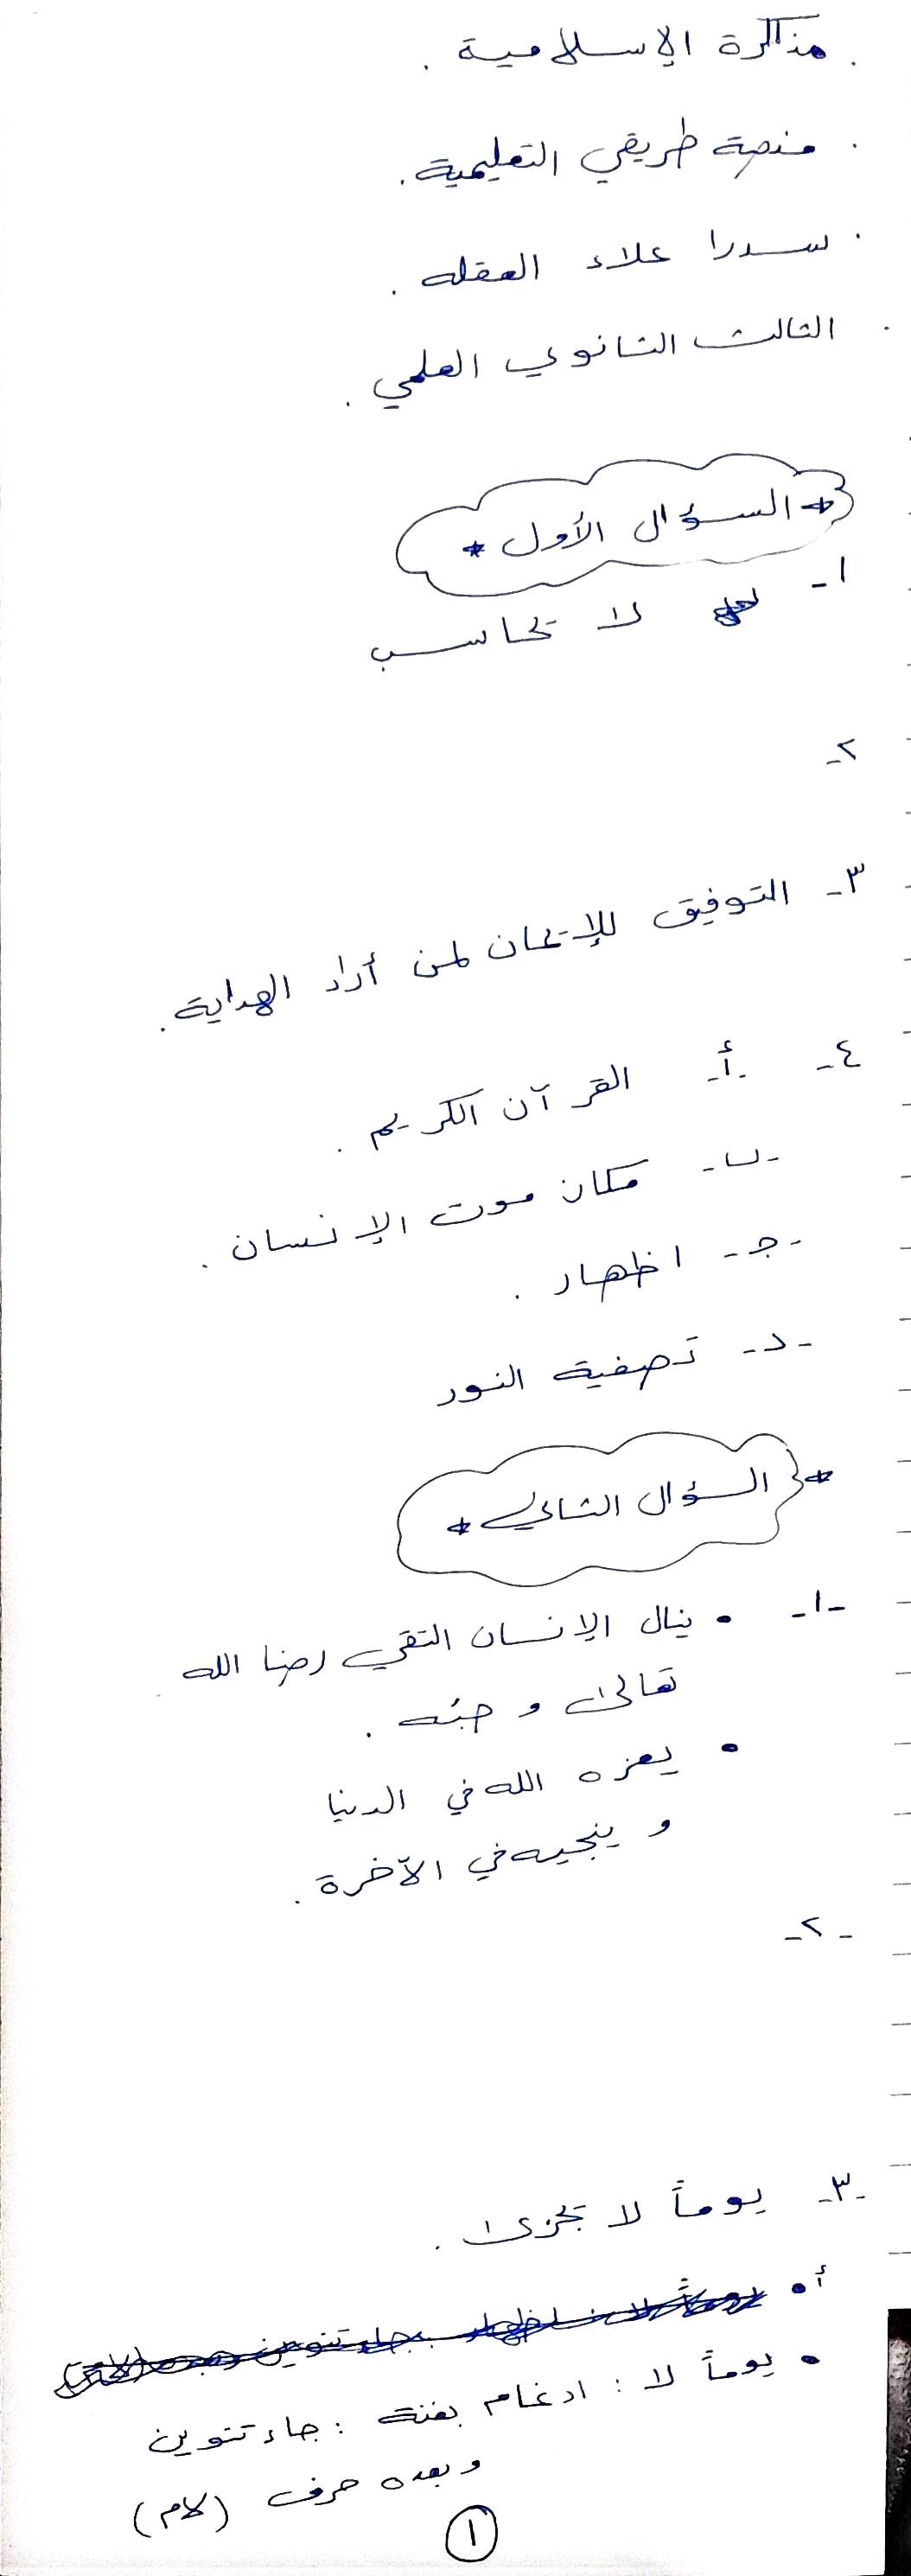 . مذاكرة الإسلامية .
. منصة طريقي التعليمية .
. سدرا علاء العقله .
. الثالث الثانوي العلمي .
* السؤال الأول *
١- لا تحاسب
٢-
٣- التوفيق للإيمان لمن أراد الهداية .
٤- -أ- القرآن الكريم .
-ب- مكان موت الإنسان .
-ج- اظهار .
-د- تصفية النور
* السؤال الثاني *
-١- • ينال الإنسان التقي رضا الله
تعالى و جنته .
• يعزه الله في الدنيا
و ينجيه في الآخرة .
-٢-
-٣- يوماً لا تجزى .
أ •
• يوماً لا : ادغام بغنة : جاء تنوين
و بعده حرف (لام)
١